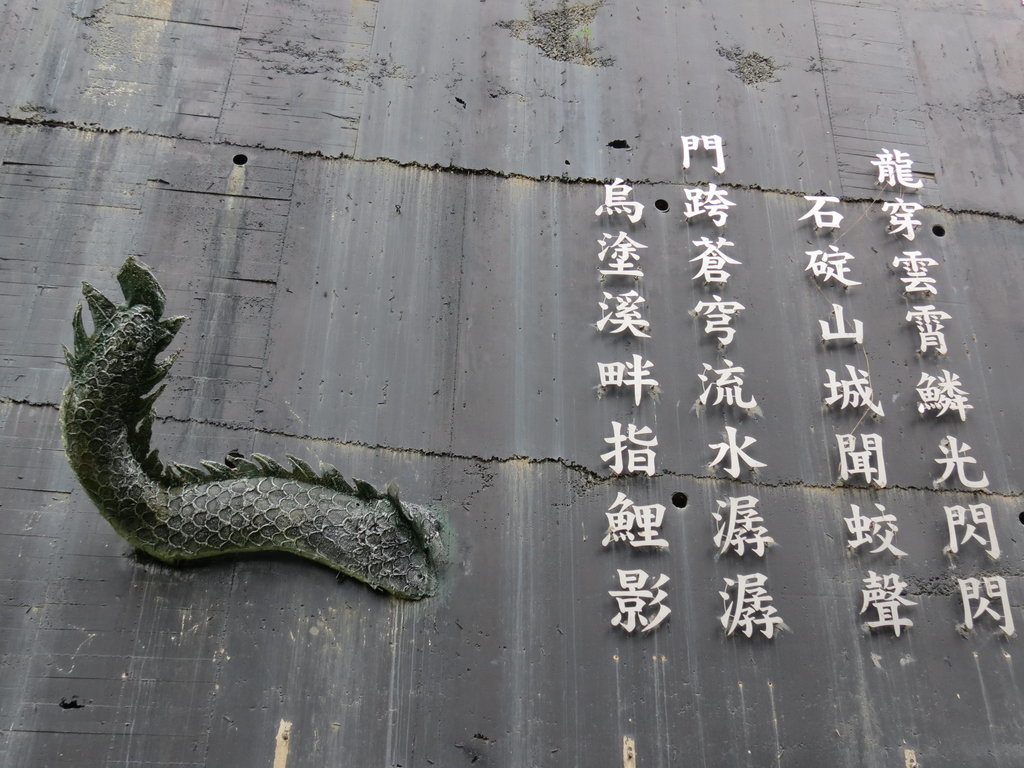 龍穿雲霄鱗光閃閃
石碇山城聞蛟聲
門跨蒼穹流水潺潺
烏塗溪畔指鯉影